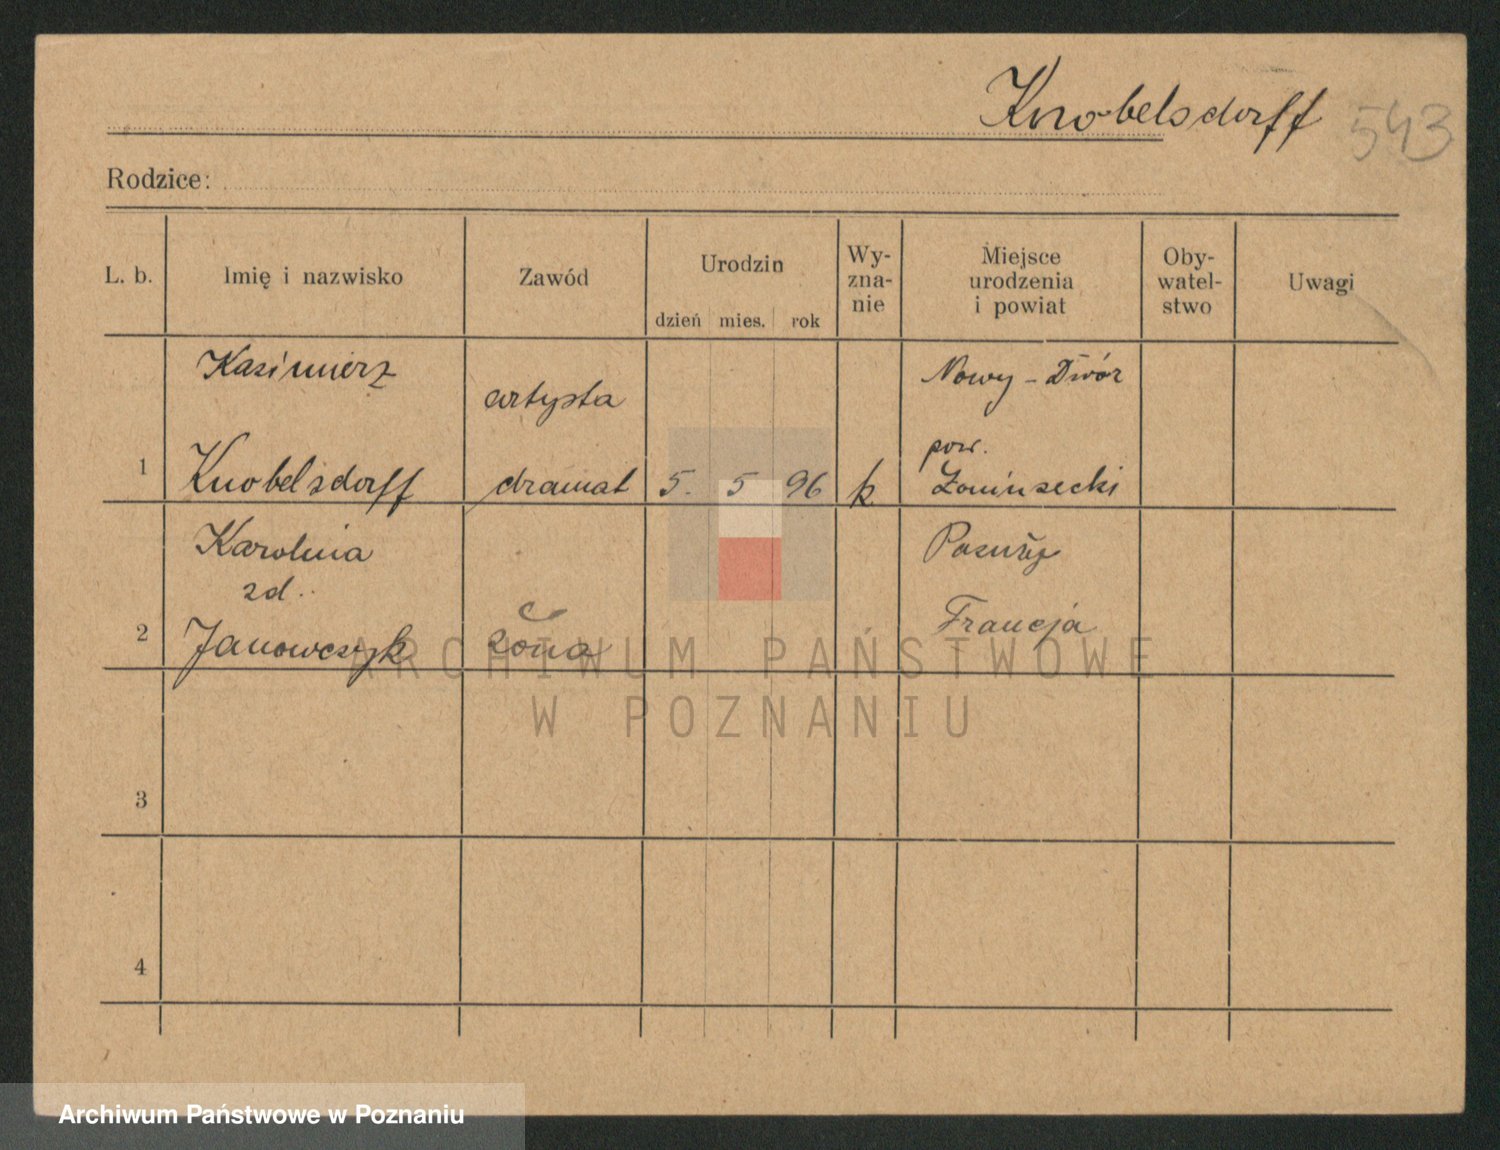 Knobelsdorff 543
Rodzice:
L. b. Imię i nazwisko Zawód Urodzin dzień mies. rok Wy-zna-nie Miejsce urodzenia i powiat Oby-watel-stwo Uwagi
Kazimierz artysta Nowy-Dwór
pow.
1 Knobelsdorff dramat 5. 5 96 k
Karolina
zd.. Francja
2 Janowczyk żona
3
4
ARCHIWUM PAŃSTWOWE
W POZNANIU
Archiwum Państwowe w Poznaniu